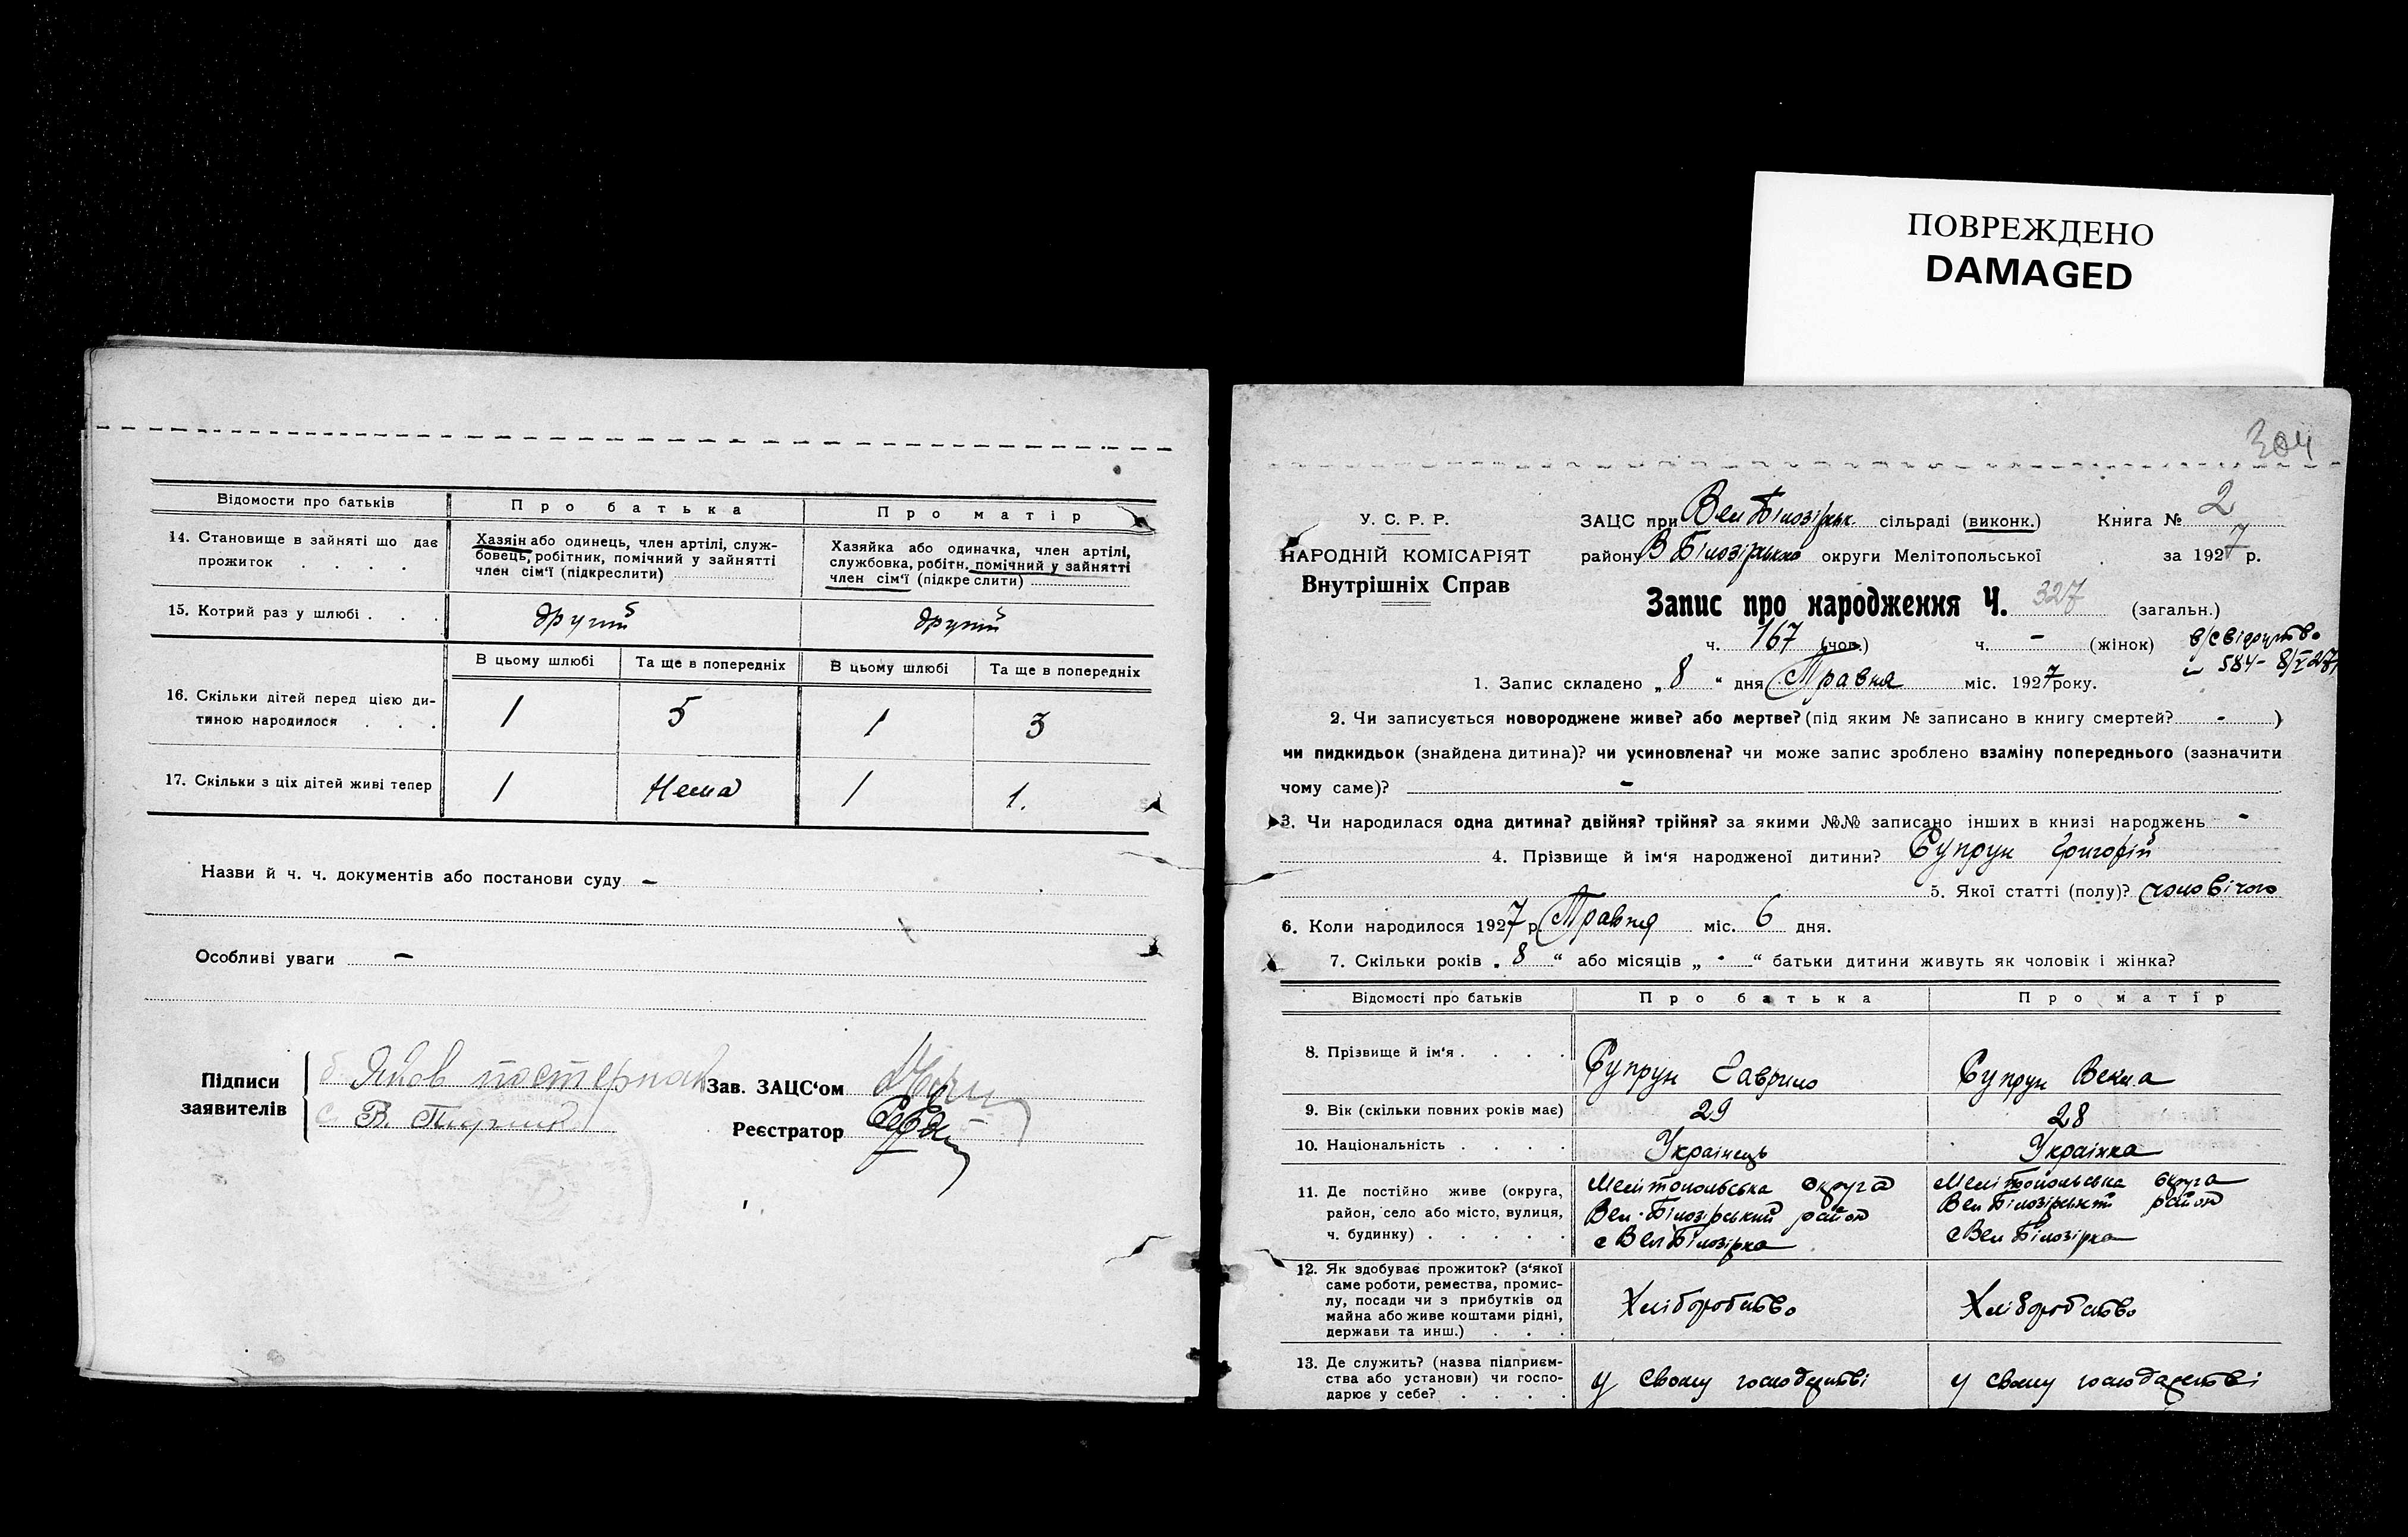 ПОВРЕЖДЕНО
DAMAGED
Відомости про батьків
Про батька
Про матір
14. Становище в зайняті що дає
прожиток . . . .
Хазяін або одинець, член артілі, служ-
бовець, робітник, помічний у зайнятті
член сім'ї (підкреслити)
Хазяйка або одиначка, член артілі,
службовка, робітн. помічний у зайнятті
член сім'ї (підкреслити)
15. Котрий раз у шлюбі . . .
другий
другий
В цьому шлюбі
Та ще в попередніх
В цьому шлюбі
Та ще в попередніх
16. Скільки дітей перед цією ди-
тиною народилося . . .
1
5
1
3
17. Скільки з ціх дітей живі тепер
1
Нема
1
1.
Назви й ч. ч. документів або постанови суду -
Особливі уваги -
Підписи
заявителів
Яков
В.
Зав. ЗАЦС'ом
Реєстратор
304
У. С. Р. Р.
НАРОДНІЙ КОМІСАРІЯТ
Внутрішніх Справ
ЗАЦС при Вел Білозірськ. сільраді (виконк.) Книга № 2
району В Білозірського округи Мелітопольської за 1927 р.
Запис про народження Ч. 327 (загальн.)
ч. 167 (чов.) ч. - (жінок)
в/свідоцтво
584- 8/V 27
1. Запис складено „8“ дня Травня міс. 1927 року.
2. Чи записується новороджене живе? або мертве? (під яким № записано в книгу смертей? - )
чи пидкидьок (знайдена дитина)? чи усиновлена? чи може запис зроблено взаміну попереднього (зазначити
чому саме)? -
3. Чи народилася одна дитина? двійня? трійня? за якими №№ записано інших в книзі народжень -
4. Прізвище й ім'я народженої дитини? Супрун Григорій
5. Якої статті (полу)? чоловічого
6. Коли народилося 1927 р. Травня міс. 6 дня.
7. Скільки років „8“ або місяців „-“ батьки дитини живуть як чоловік і жінка?
Відомості про батьків
Про батька
Про матір
8. Прізвище й ім'я . . . .
Супрун Гаврило
Супрун Векла
9. Вік (скільки повних років має)
29
28
10. Національність . . . .
Українець
Українка
11. Де постійно живе (округа,
район, село або місто, вулиця,
ч. будинку) . . . . .
Мелітопольська округа
Вел. Білозірський район
с Вел Білозірка
Мелітопольська округа
Вел Білозірський район
с Вел Білозірка
12. Як здобуває прожиток? (з'якої
саме роботи, ремества, промис-
лу, посади чи з прибутків од
майна або живе коштами рідні,
держави та инш.) . . .
Хліборобство
Хліборобство
13. Де служить? (назва підприєм-
ства або установи) чи госпо-
дарює у себе? . . . .
у свому господарстві
у свому господарстві